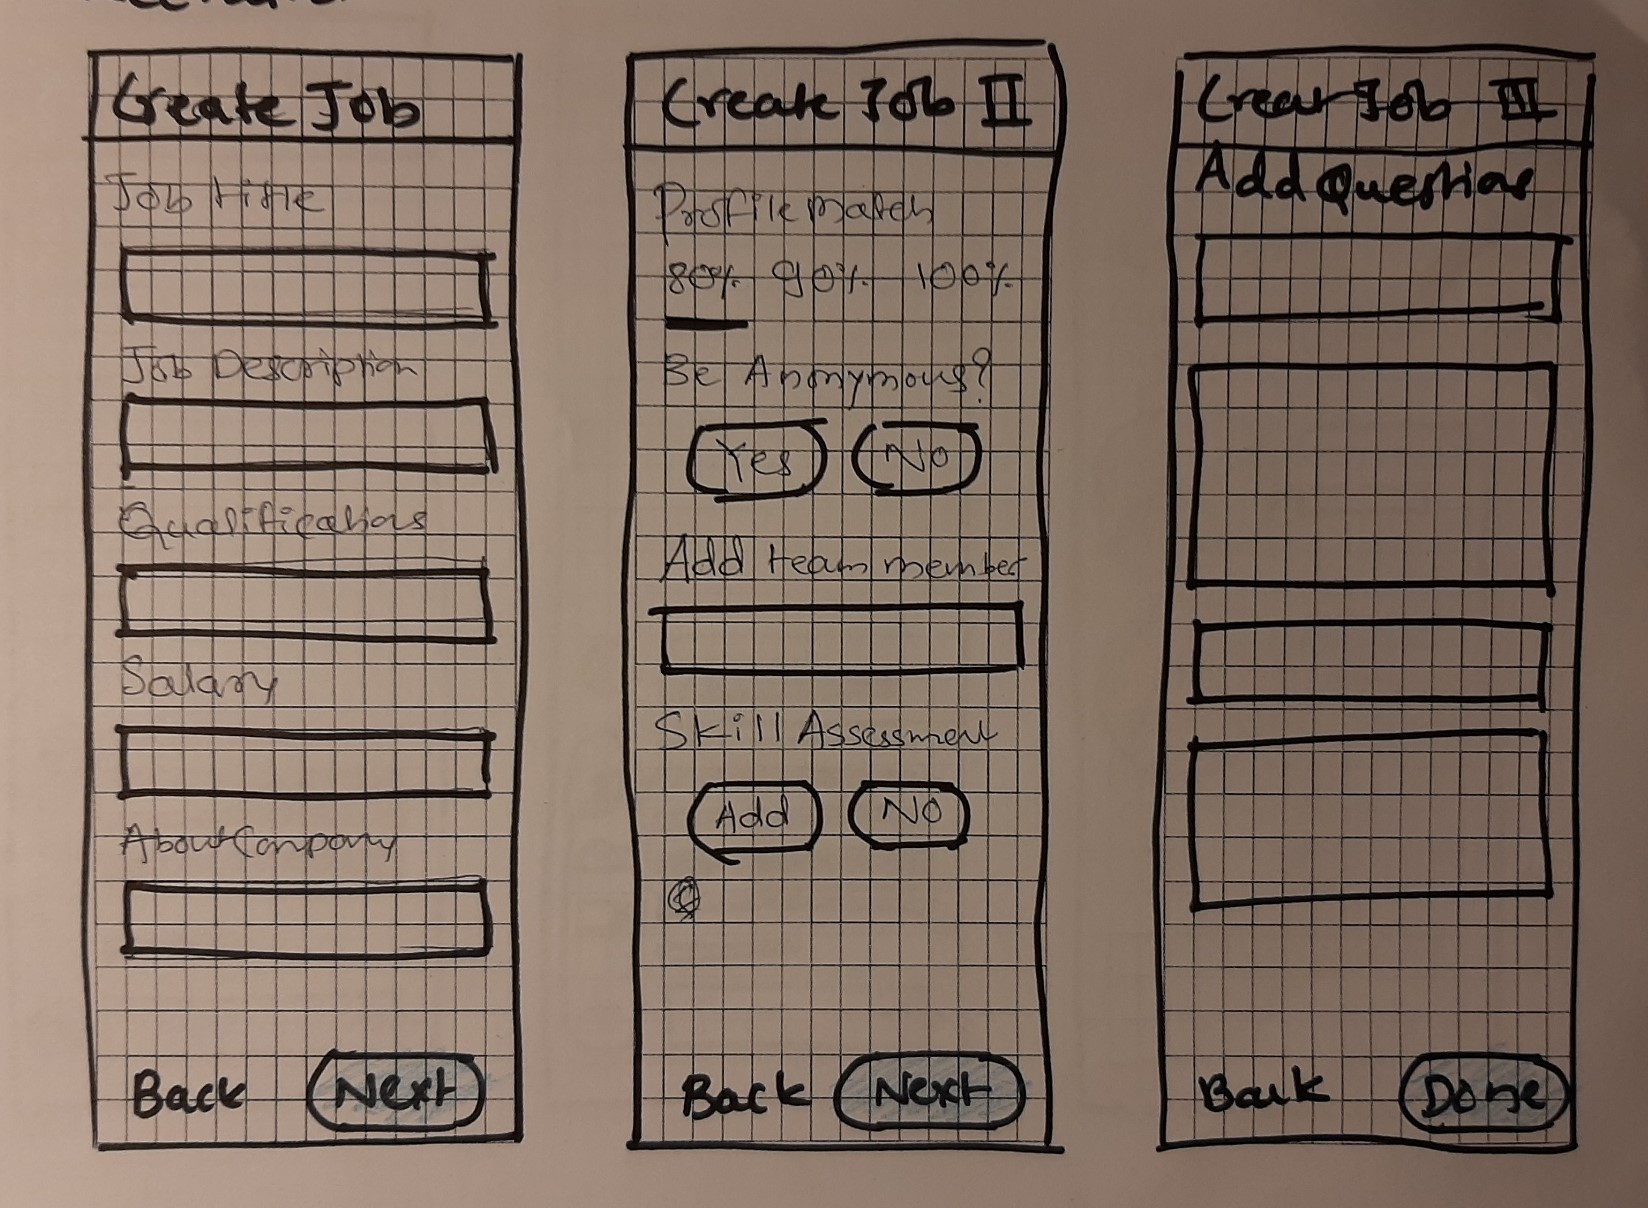 Create Job
Job title
Job Description
Qualifications
Salary
About Company
Back Next
Create Job II
Profile match
80% 90% 100%
Be Anonymous?
Yes No
Add team member
Skill Assessment
Add No
Back Next
Creat Job III
Add Questions
Back Done